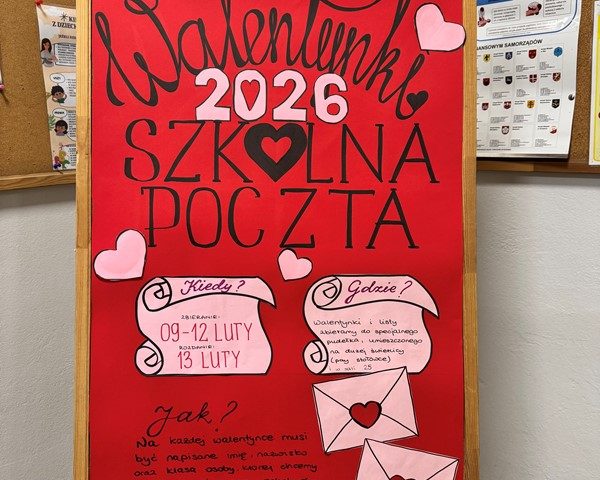 Walentynki
2026
SZKOLNA
POCZTA
Kiedy?
ZBIERANIE:
09-12 LUTY
ROZDANIE:
13 LUTY
Gdzie?
Walentynki i listy
zbieramy do specjalnego
pudełka, umieszczonego
na dużej świetlicy
(przy stołówce)
i w sali 25
Jak?
Na każdej walentynce musi
być napisane imię, nazwisko
oraz klasa osoby, której chcemy